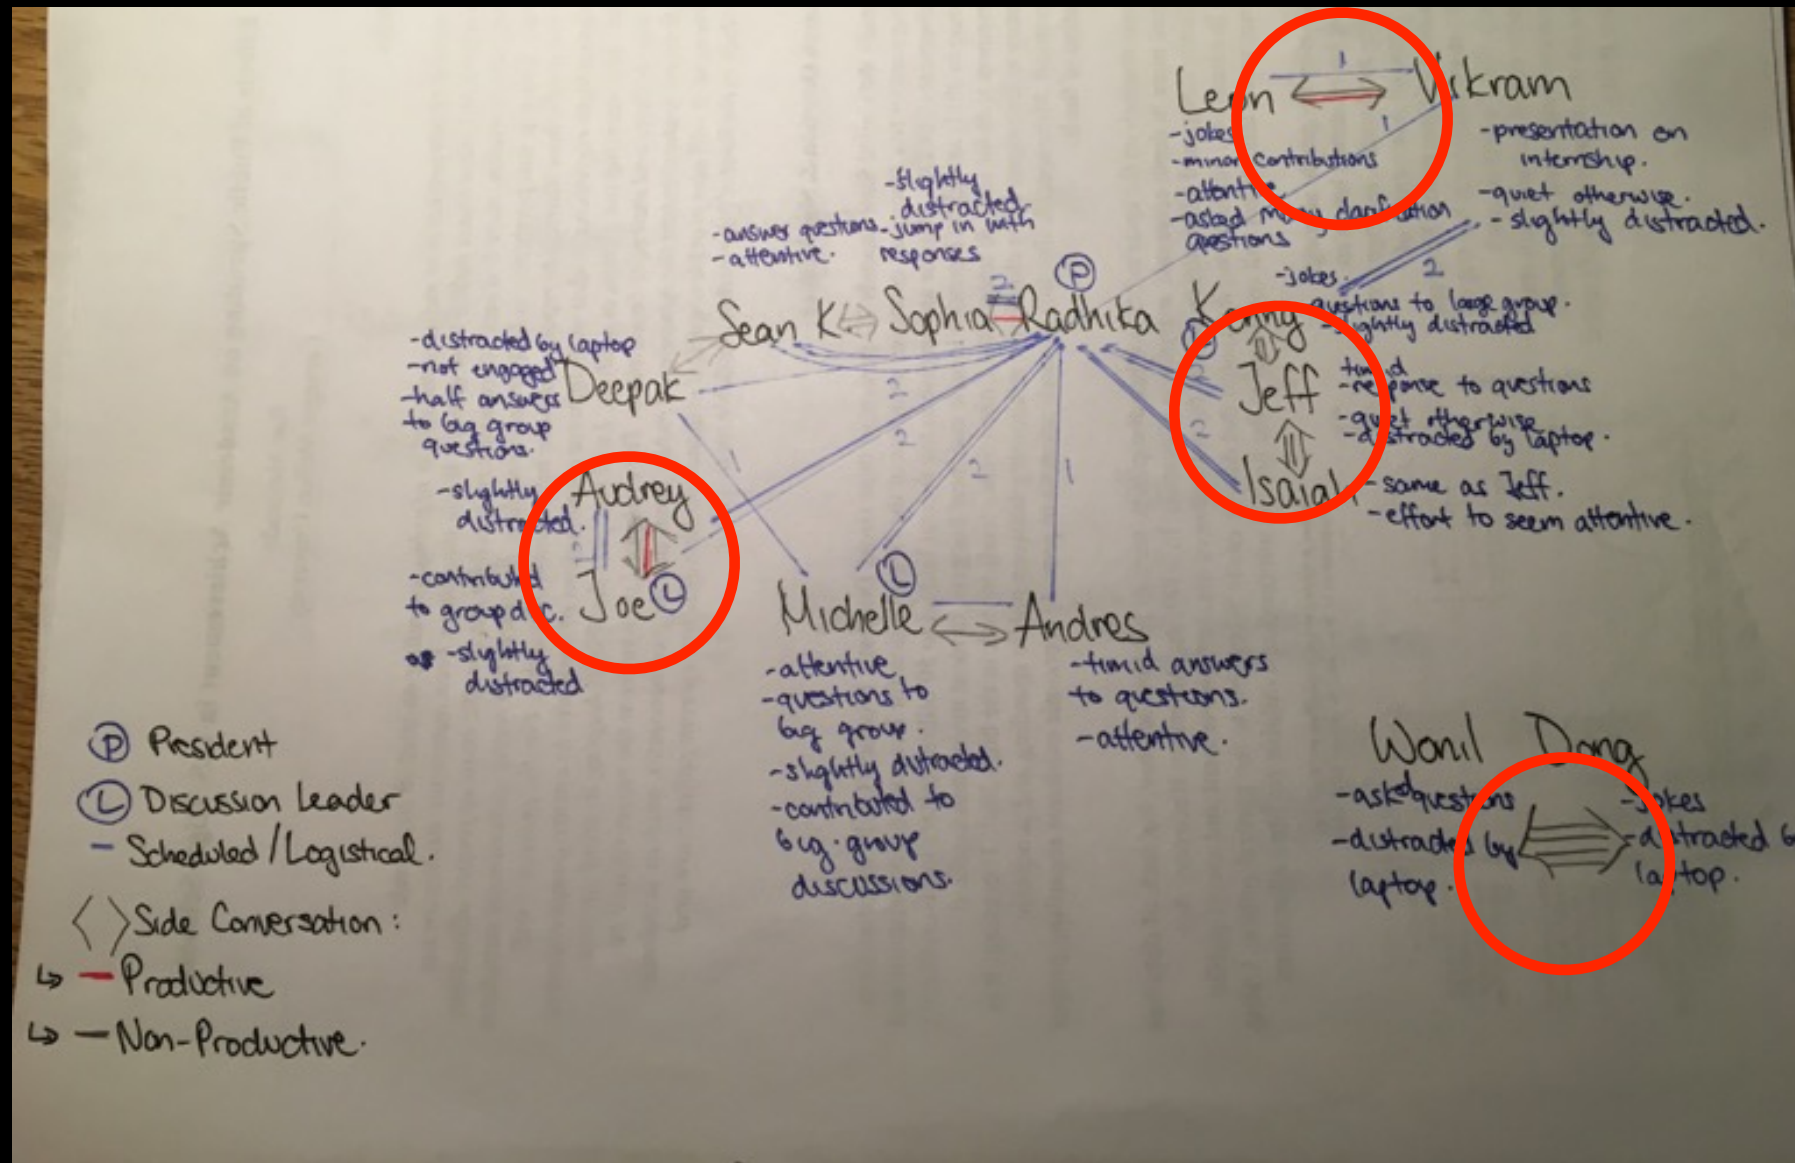 Leon
Vikram
1
1
-jokes
-minor contributions
-attentive
-asked many clarification
questions
-presentation on
internship.
-quiet otherwise.
- slightly distracted.
2
-slightly
distracted
-jump in with
responses
-answer questions
-attentive.
Sean K.
Sophia
2
Radhika
P
Kenny
L
-jokes.
questions to large group.
-slightly distracted
-distracted by laptop
-not engaged
-half answers
to big group
questions.
Deepak
Jeff
timid
-response to questions
-quiet otherwise
-distracted by laptop.
2
2
2
2
1
1
Isaiah
-same as Jeff.
-effort to seem attentive.
Audrey
-slightly
distracted.
2
Joe
L
-contributed
to group disc.
-slightly
distracted
Michelle
L
-attentive
-questions to
big group.
-slightly distracted.
-contributed to
big group
discussions.
Andres
-timid answers
to questions.
-attentive.
Wonil
Dong
-asked questions
-distracted by
laptop.
-jokes
-distracted
laptop.
P President
L Discussion Leader
- Scheduled/Logistical.
<> Side Conversation:
↳ - Productive
↳ - Non-Productive.